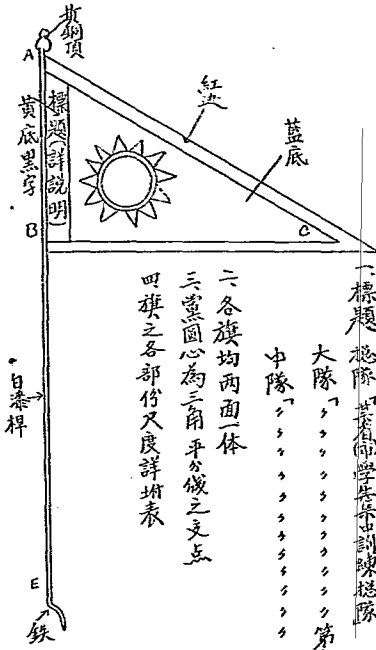 黃銅頂
A
紅边
藍底
標題(詳說明)
黃底黑字
B
C
白漆桿
E
鉄
一、標題 總隊「某省市學生集中訓練總隊
大隊「〃〃〃〃〃〃〃〃〃第
中隊「〃〃〃〃〃〃〃〃〃
二、各旗均两面一体
三、黨圓心為三角平分线之交点
四、旗之各部份尺度詳坿表